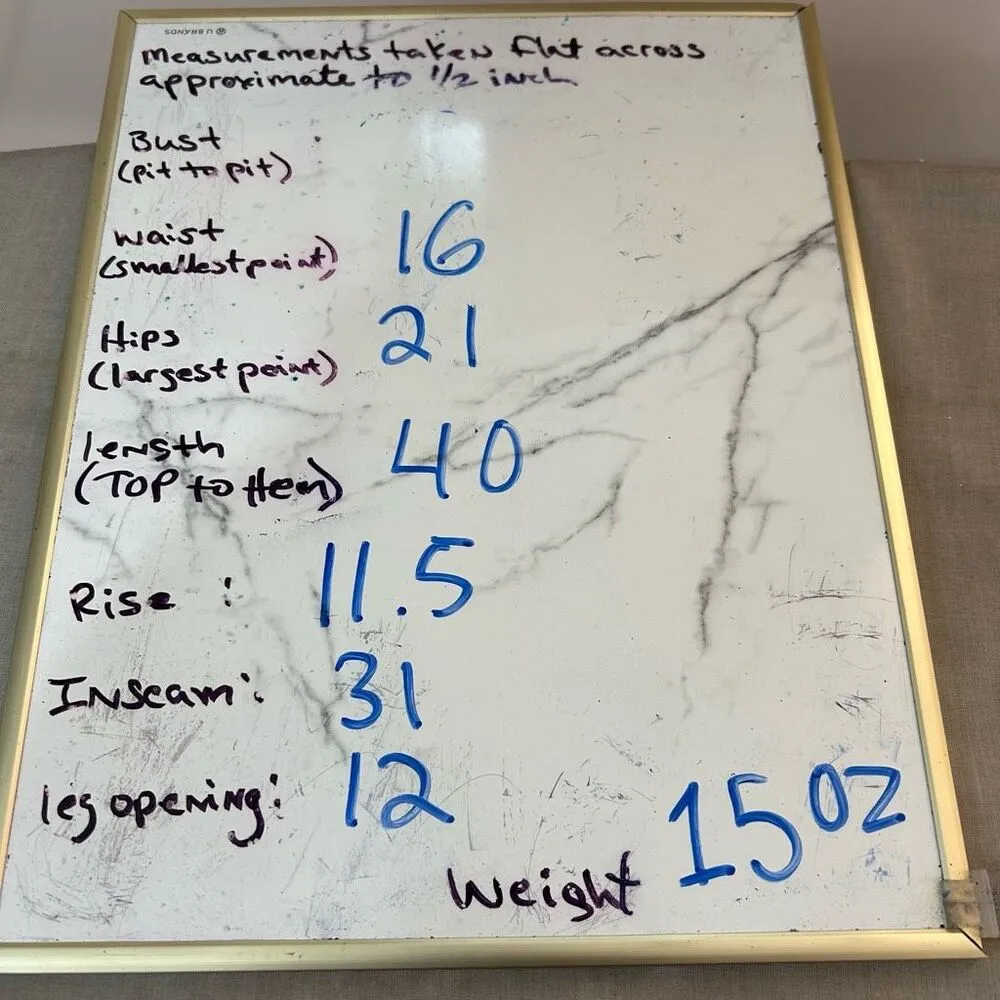 U BRANDS ®
Measurements taken flat across
approximate to 1/2 inch
Bust
(pit to pit)
waist 16
(smallest point)
Hips 21
(largest point)
length 40
(TOP to Hem)
Rise : 11.5
Inseam: 31
leg opening: 12
15 OZ
Weight